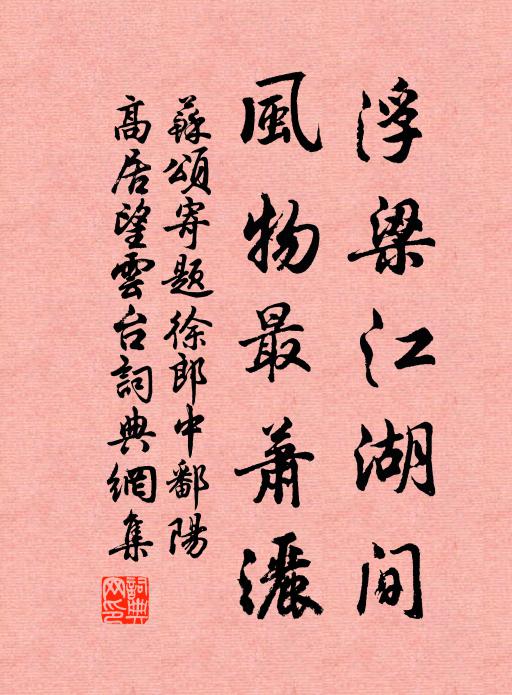 浮梁江湖间
風物最蕭灑
蘇頌寄題徐郎中鄱陽
高居望雲台詞典網集
詞典
网印